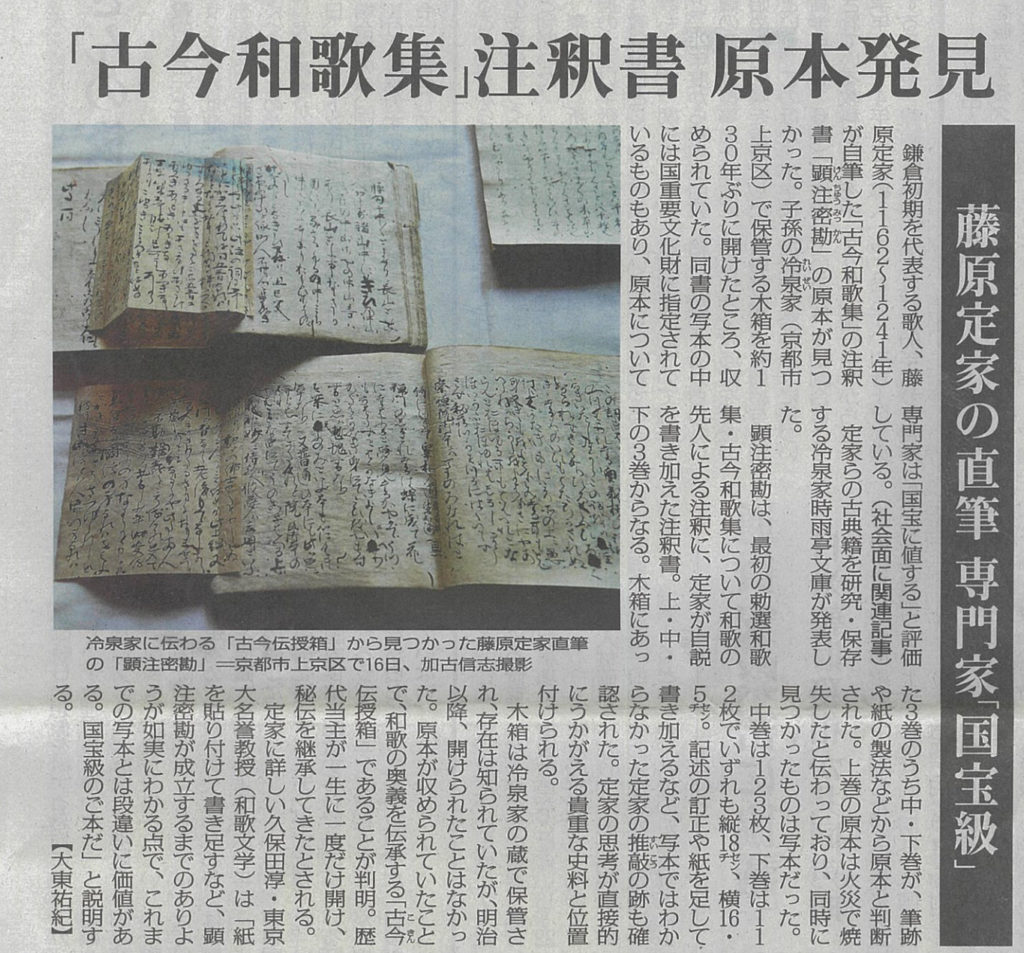 「古今和歌集」注釈書 原本発見
藤原定家の直筆 専門家「国宝級」
鎌倉初期を代表する歌人、藤
原定家(1162~1241年)
が自筆した「古今和歌集」の注釈
書「顕注密勘」の原本が見つ
かった。子孫の冷泉家(京都市
上京区)で保管する木箱を約1
30年ぶりに開けたところ、収
められていた。同書の写本の中
には国重要文化財に指定されて
いるものもあり、原本について
専門家は「国宝に値する」と評価
している。(社会面に関連記事)
定家らの古典籍を研究・保存
する冷泉家時雨亭文庫が発表し
た。
顕注密勘は、最初の勅選和歌
集・古今和歌集について和歌の
先人による注釈に、定家が自説
を書き加えた注釈書。上・中・
下の3巻からなる。木箱にあっ
た3巻のうち中・下巻が、筆跡
や紙の製法などから原本と判断
された。上巻の原本は火災で焼
失したと伝わっており、同時に
見つかったものは写本だった。
中巻は123枚、下巻は11
2枚でいずれも縦18㌢、横16・
5㌢。記述の訂正や紙を足して
書き加えるなど、写本ではわか
らなかった定家の推敲の跡も確
認された。定家の思考が直接的
にうかがえる貴重な史料と位置
付けられる。
木箱は冷泉家の蔵で保管さ
れ、存在は知られていたが、明治
以降、開けられたことはなかっ
た。原本が収められていたこと
で、和歌の奥義を伝承する「古今
伝授箱」であることが判明。歴
代当主が一生に一度だけ開け、
秘伝を継承してきたとされる。
定家に詳しい久保田淳・東京
大名誉教授(和歌文学)は「紙
を貼り付けて書き足すなど、顕
注密勘が成立するまでのありよ
うが如実にわかる点で、これま
での写本とは段違いに価値があ
る。国宝級のご本だ」と説明す
る。
【大東祐紀】
冷泉家に伝わる「古今伝授箱」から見つかった藤原定家直筆
の「顕注密勘」=京都市上京区で16日、加古信志撮影